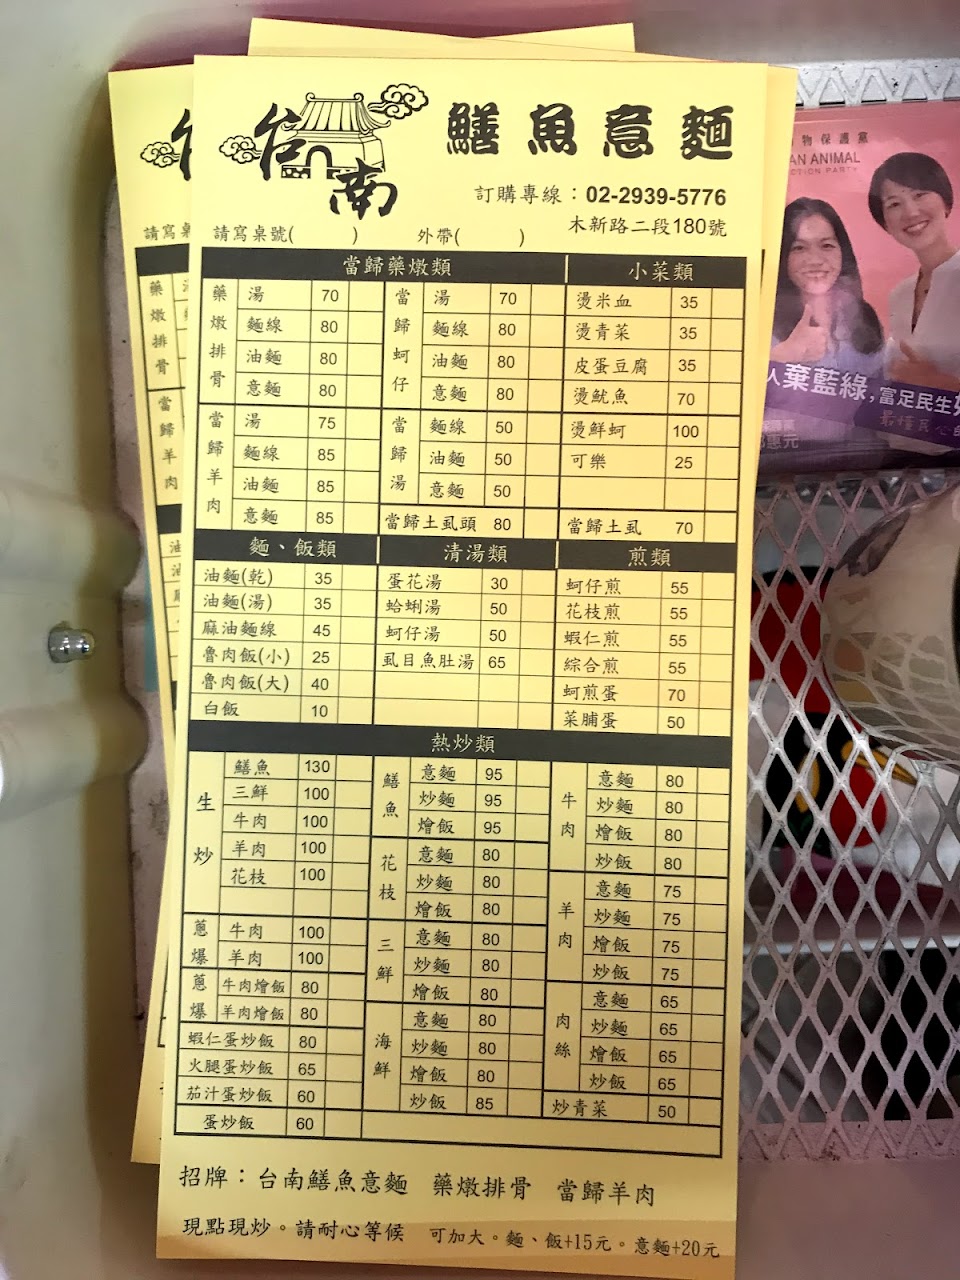 台南
鱔魚意麵
訂購專線：02-2939-5776
木新路二段180號
請寫桌號(　　) 外帶(　　)
當歸藥燉類 小菜類
藥燉排骨 湯 70 當歸蚵仔 湯 70 燙米血 35
麵線 80 麵線 80 燙青菜 35
油麵 80 油麵 80 皮蛋豆腐 35
意麵 80 意麵 80 燙魷魚 70
當歸羊肉 湯 75 當歸湯 麵線 50 燙鮮蚵 100
麵線 85 油麵 50 可樂 25
油麵 85 意麵 50
意麵 85 當歸土虱頭 80 當歸土虱 70
麵、飯類 清湯類 煎類
油麵(乾) 35 蛋花湯 30 蚵仔煎 55
油麵(湯) 35 蛤蜊湯 50 花枝煎 55
麻油麵線 45 蚵仔湯 50 蝦仁煎 55
魯肉飯(小) 25 虱目魚肚湯 65 綜合煎 55
魯肉飯(大) 40 蚵煎蛋 70
白飯 10 菜脯蛋 50
熱炒類
生炒 鱔魚 130 鱔魚 意麵 95 牛肉 意麵 80
三鮮 100 炒麵 95 炒麵 80
牛肉 100 燴飯 95 燴飯 80
羊肉 100 花枝 意麵 80 炒飯 80
花枝 100 炒麵 80 羊肉 意麵 75
燴飯 80 炒麵 75
蔥爆 牛肉 100 三鮮 意麵 80 燴飯 75
羊肉 100 炒麵 80 炒飯 75
蔥爆 牛肉燴飯 80 燴飯 80 肉絲 意麵 65
羊肉燴飯 80 海鮮 意麵 80 炒麵 65
蝦仁蛋炒飯 80 炒麵 80 燴飯 65
火腿蛋炒飯 65 燴飯 80 炒飯 65
茄汁蛋炒飯 60 炒飯 85 炒青菜 50
蛋炒飯 60
招牌：台南鱔魚意麵 藥燉排骨 當歸羊肉
現點現炒。請耐心等候 可加大。麵、飯+15元。意麵+20元
請寫桌
藥燉排骨
當歸羊肉
物保護黨
AN ANIMAL
CTION PARTY
人棄藍綠，富足民生
最懂民心
惠元